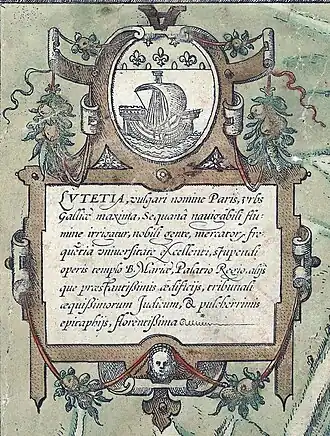 LVTETIA, vulgari nomine Paris, vrbs
Galliæ maxima, Sequana nauigabili flu,,
mine irrigatur, nobili gente, mercator, fre,,
quētia vniuersitate excellenti, stupendi
operis templo B. Mariæ, Palatio Regio, alijs
que præstantissimis ædificijs, tribunali
æquissimorum Judicum, & pulcherrimis
epitaphijs, florentissima